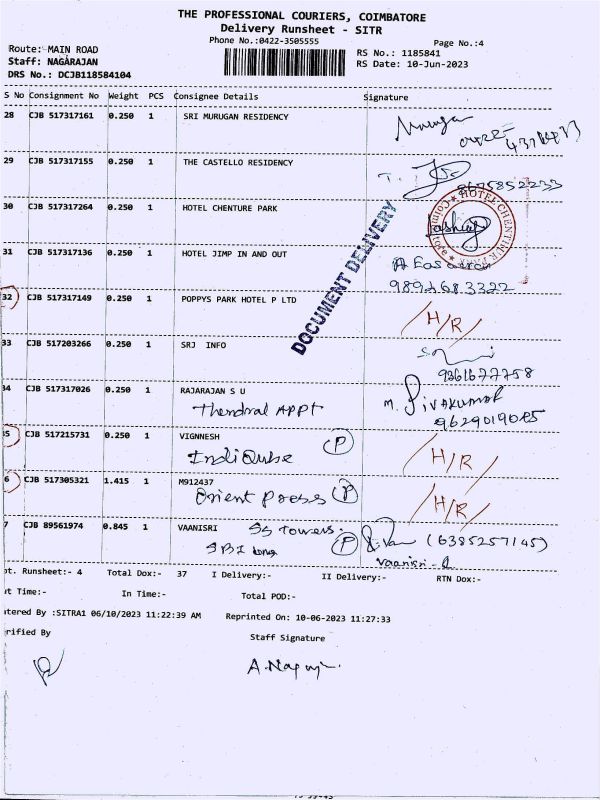 THE PROFESSIONAL COURIERS, COIMBATORE
Delivery Runsheet - SITR
Phone No.:0422-3505555
Page No.:4
Route:- MAIN ROAD
RS No.: 1185841
Staff: NAGARAJAN
RS Date: 10-Jun-2023
DRS No.: DCJB118584104
S No Consignment No Weight PCS Consignee Details Signature
28 CJB 517317161 0.250 1 SRI MURUGAN RESIDENCY
Murugan
29 CJB 517317155 0.250 1 THE CASTELLO RESIDENCY
30 CJB 517317264 0.250 1 HOTEL CHENTURE PARK
31 CJB 517317136 0.250 1 HOTEL JIMP IN AND OUT
9894683322
DOCUMENT DELIVERY
32 CJB 517317149 0.250 1 POPPYS PARK HOTEL P LTD
H/R
33 CJB 517203266 0.250 1 SRJ INFO
9361677758
34 CJB 517317026 0.250 1 RAJARAJAN S U
Thendral APPt
M. SIVAKUMAR
9629019085
35 CJB 517215731 0.250 1 VIGNNESH
IndiQube P
H/R
6 CJB 517305321 1.415 1 M912437
Orient Press P
H/R
7 CJB 89561974 0.845 1 VAANISRI
SS Towers.
SBI P
(6385257145)
Vaanisri
ot. Runsheet:- 4 Total Dox:- 37 I Delivery:- II Delivery:- RTN Dox:-
ut Time:- In Time:- Total POD:-
ntered By :SITRA1 06/10/2023 11:22:39 AM Reprinted On: 10-06-2023 11:27:33
erified By
Staff Signature